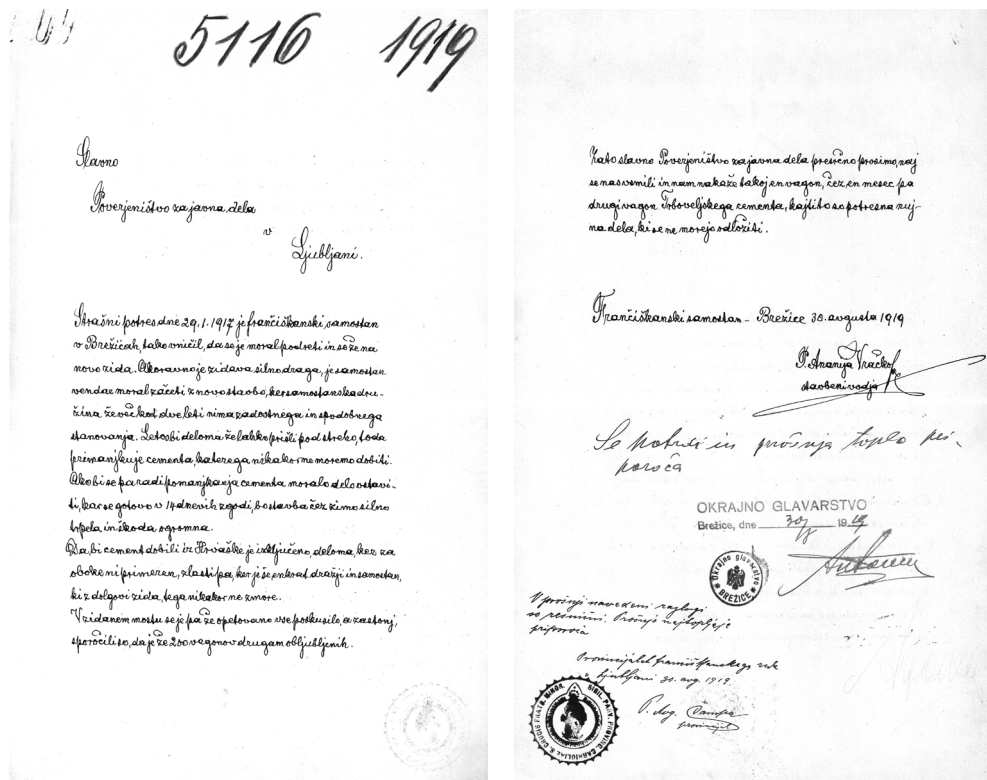 5116 1919
Slavno
Poverjeništvo za javna dela
v
Ljubljani.
Strašni potres dne 29.1.1917 je frančiškanski samostan
v Brežicah, tako vničil, da se je moral podreti in se že na
novo zida. Akoravno je zidava silno draga, je samostan
vendar moral začeti z novo stavbo, ker samostanska dru-
žina že več kot dve leti nima zadostnega in spodobnega
stanovanja. Letos bi deloma že lahko prišli pod streho, toda
primanjkuje cementa, katerega nikakor ne moremo dobiti.
Ako bi se pa radi pomanjkanja cementa moralo delo ustavi-
ti, kar se gotovo v 14 dneh zgodi, bo stavba čez zimo silno
trpela in škoda ogromna.
Da bi cement dobili iz Hrvaške je izključeno, deloma, ker za
oboke ni primeren, zlasti pa, ker je še enkrat dražji in samostan,
ki z dolgovi zida, tega nikakor ne zmore.
V zidanem mostu se je pa že opetovano vse poskusilo, a zastonj,
sporočili so, da je že 200 vagonov drugam obljubljenih.
Zato slavno Poverjeništvo za javna dela presrčno prosimo, naj
se nas vsmili in nam nakaže takoj en vagon, čez en mesec pa
drugi vagon Trboveljskega cementa, kajti to so potresna nuj-
na dela, ki se ne morejo odložiti.
Frančiškanski samostan - Brežice 30. avgusta 1919
P. Ananija Vračko
stavbeni vodja
Se potrdi in prošnja toplo pri-
poroča
OKRAJNO GLAVARSTVO
Brežice, dne 30/ 1919
Okrajno glavarstvo
BREŽICE
V prošnji navedeni razlogi
so resnični. Prošnjo najtopleje
priporoča
Provincijalat frančiškanskega reda
v Ljubljani 30. avg. 1919.
P. Avg.
provincijal